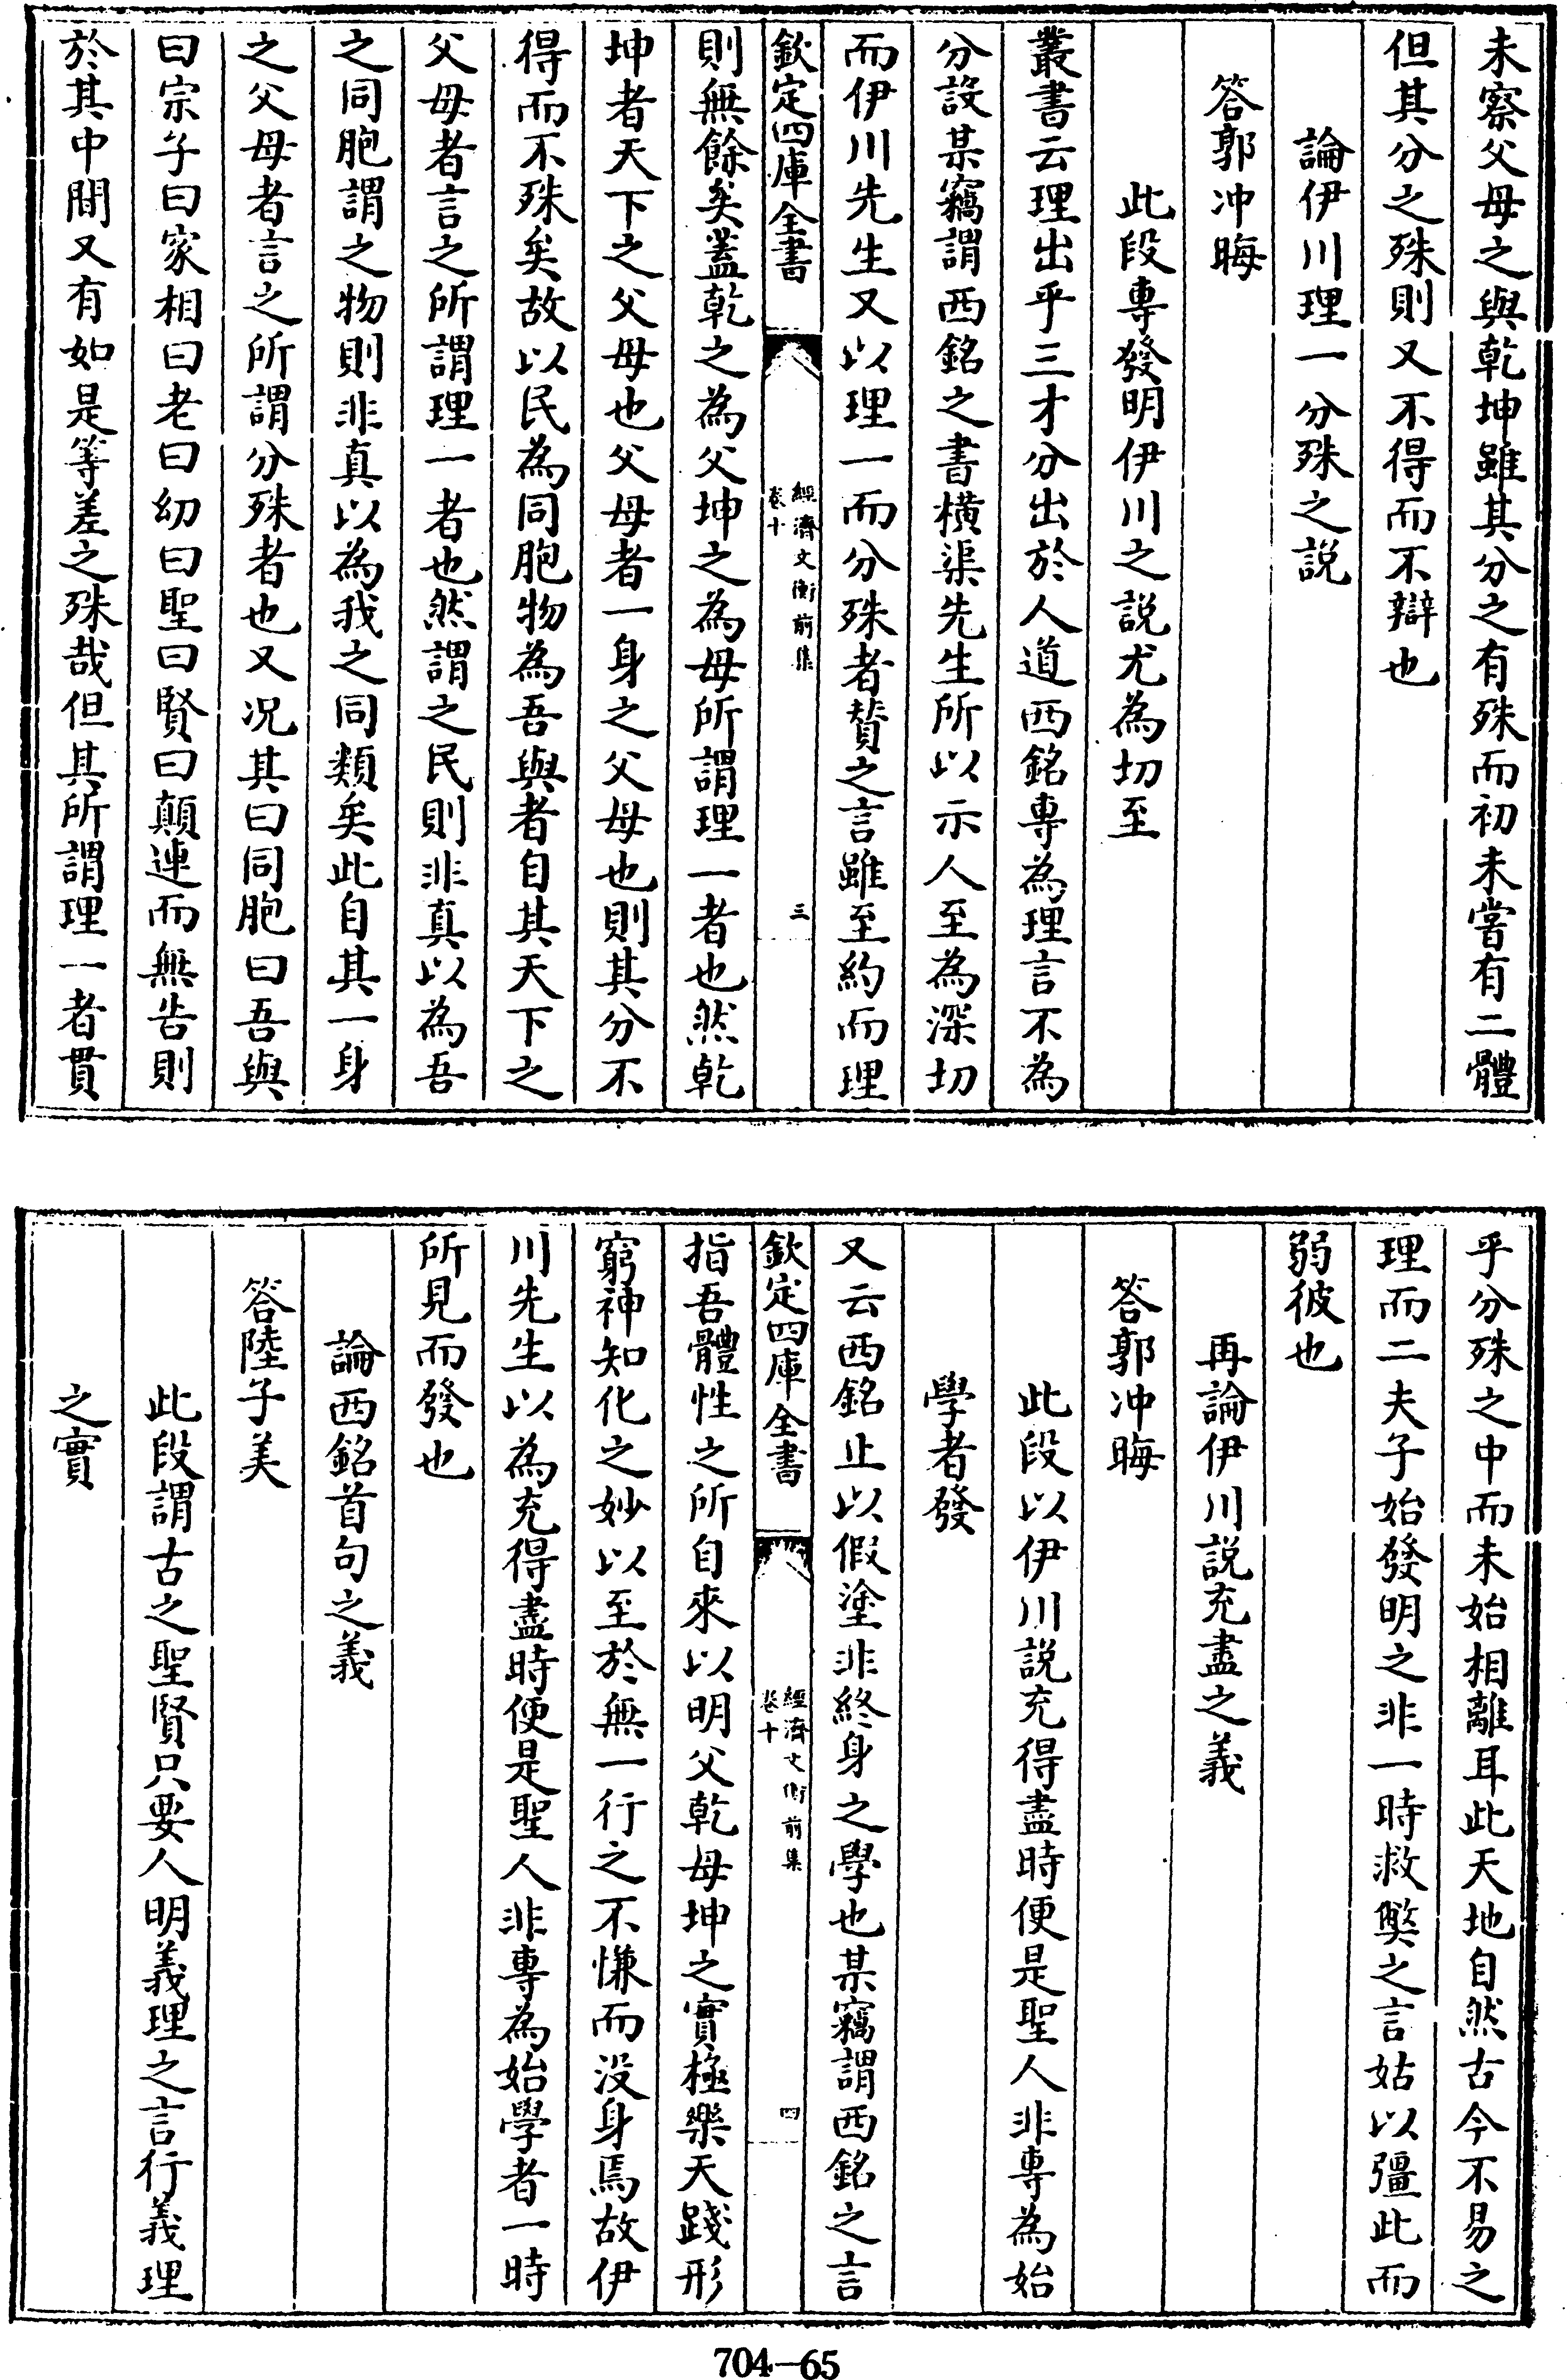 未察父母之與乾坤雖其分之有殊而初未嘗有二體
但其分之殊則又不得而不辯也
論伊川理一分殊之説
答郭冲晦
此段專發明伊川之説尤為切至
叢書云理出乎三才分出於人道西銘專為理言不為
分設某竊謂西銘之書橫渠先生所以示人至為深切
而伊川先生又以理一而分殊者賛之言雖至約而理
欽定四庫全書
經濟文衡前集
卷十
三
則無餘矣蓋乾之為父坤之為母所謂理一者也然乾
坤者天下之父母也父母者一身之父母也則其分不
得而不殊矣故以民為同胞物為吾與者自其天下之
父母者言之所謂理一者也然謂之民則非真以為吾
之同胞謂之物則非真以為我之同類矣此自其一身
之父母者言之所謂分殊者也又况其曰同胞曰吾與
曰宗子曰家相曰老曰幼曰聖曰賢曰顛連而無告則
於其中間又有如是等差之殊哉但其所謂理一者貫
乎分殊之中而未始相離耳此天地自然古今不易之
理而二夫子始發明之非一時救獘之言姑以彊此而
弱彼也
再論伊川説充盡之義
答郭冲晦
此段以伊川説充得盡時便是聖人非專為始
學者發
又云西銘止以假塗非終身之學也某竊謂西銘之言
欽定四庫全書
經濟文衡前集
卷十
四
指吾體性之所自來以明父乾母坤之實極樂天踐形
窮神知化之妙以至於無一行之不慊而没身焉故伊
川先生以為充得盡時便是聖人非專為始學者一時
所見而發也
論西銘首句之義
答陸子美
此段謂古之聖賢只要人明義理之言行義理
之實
704—65